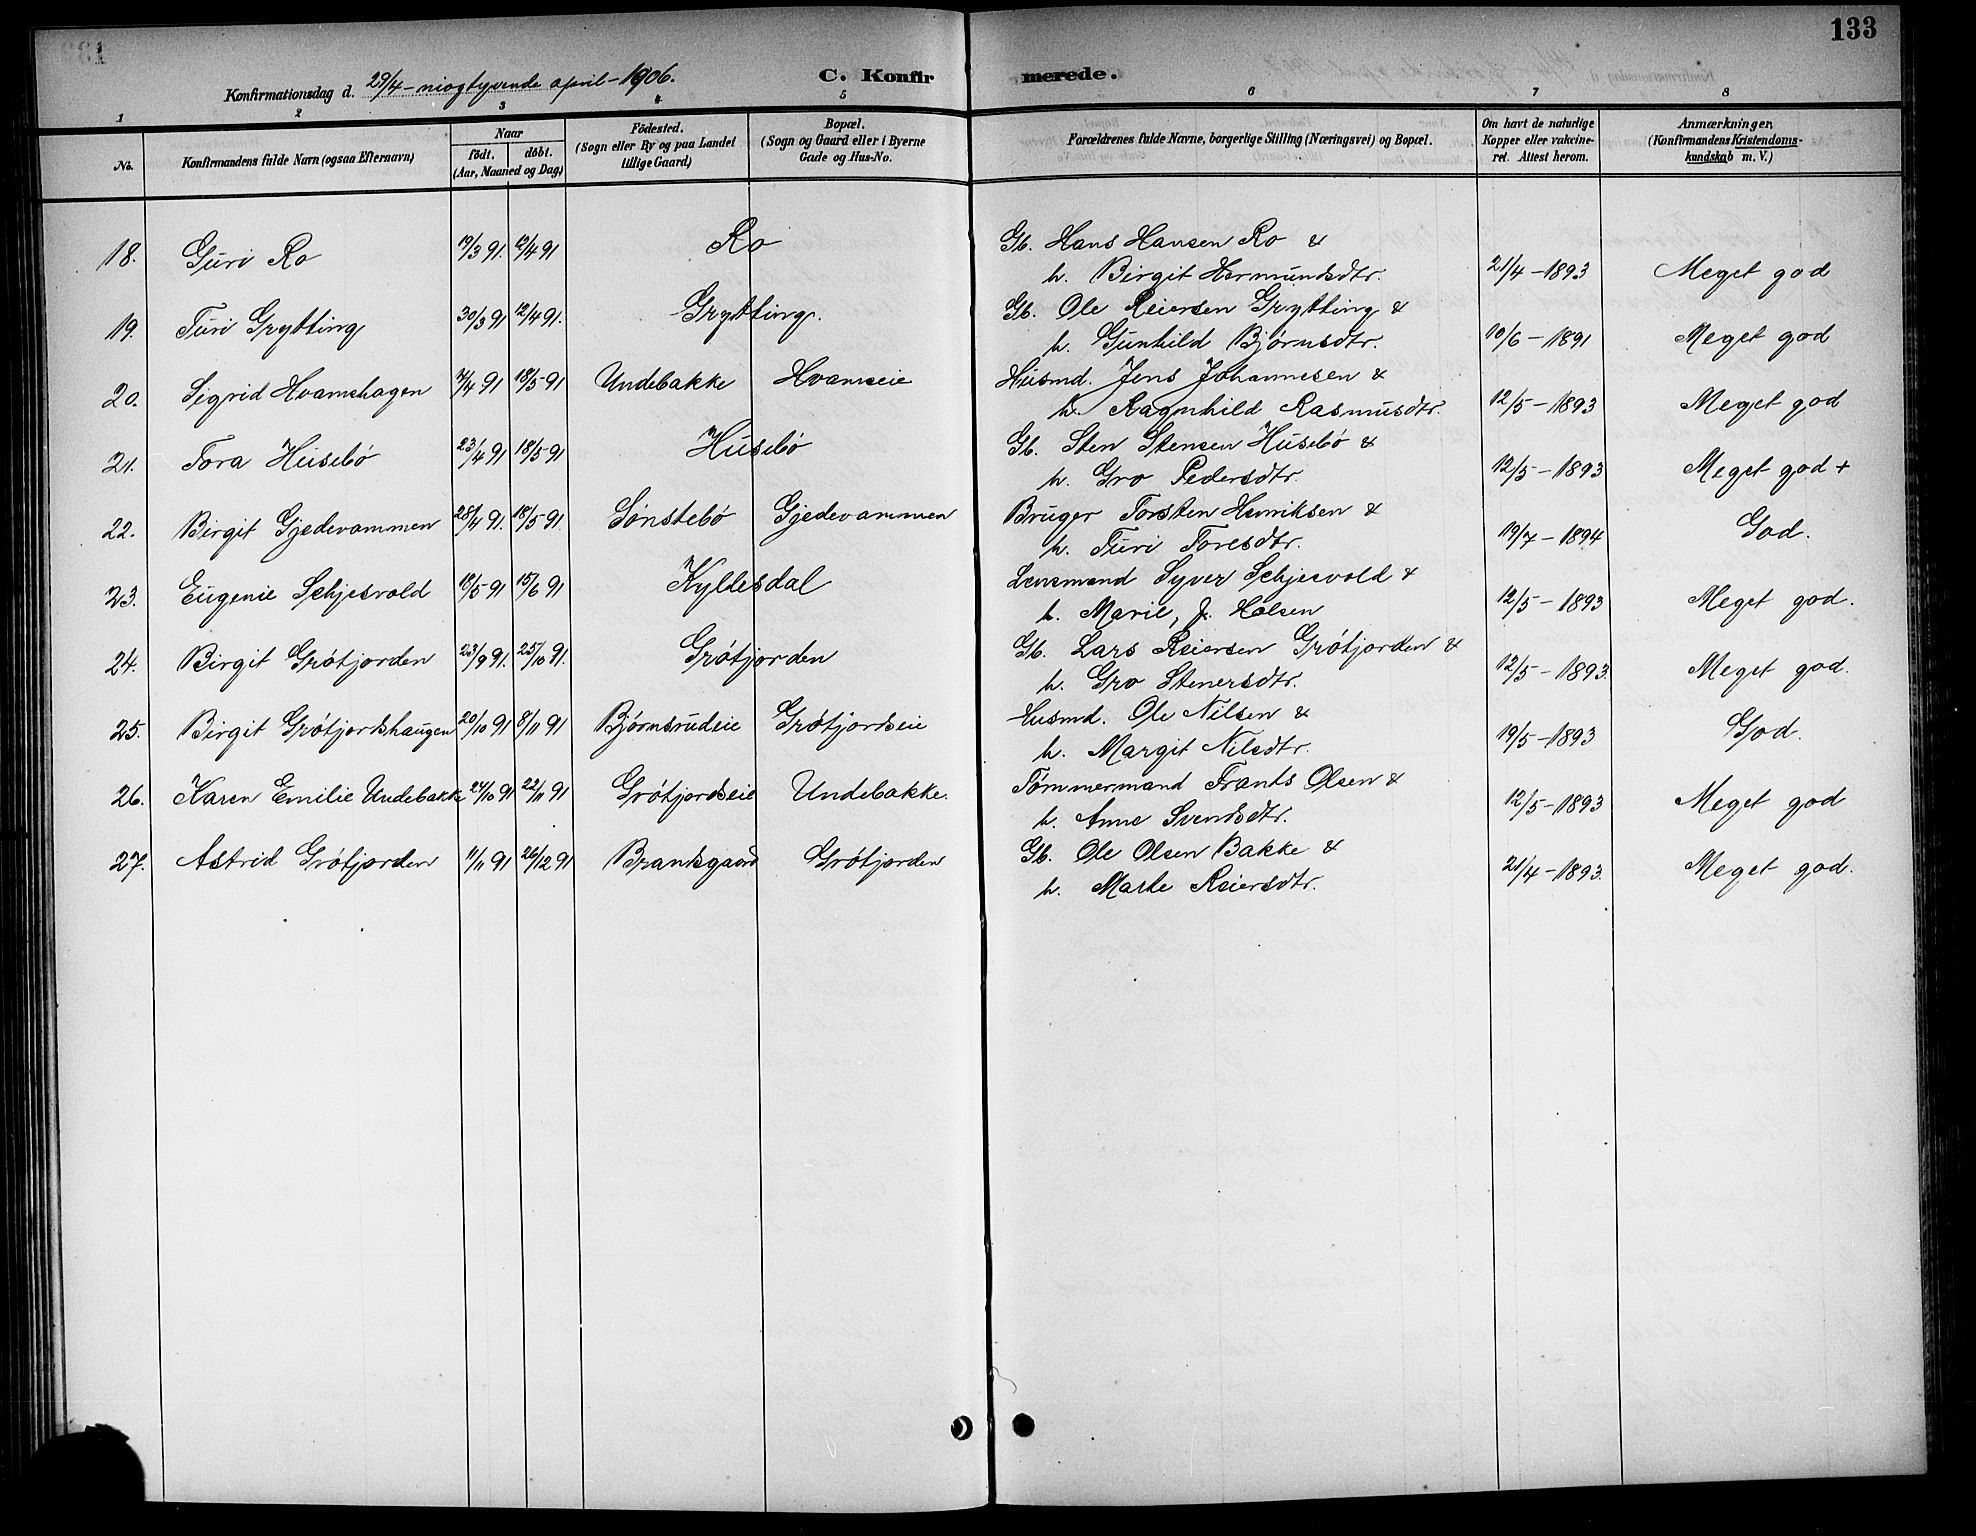 133
Konfirmationsdag d. 29/4 - niogtyvende april - 1906. C. Konfirmerede.
1 2 3 4 5 6 7 8
No. Konfirmandens fulde Navn (ogsaa Efternavn) Naar födt. döbt. (Aar, Maaned og Dag) Födested. (Sogn eller By og paa Landet tillige Gaard) Bopæl. (Sogn og Gaard eller i Byerne Gade og Hus-No. Forældrenes fulde Navne, borgerlige Stilling (Næringsvei) og Bopæl. Om havt de naturlige Kopper eller vakcineret. Attest herom. Anmærkninger, (Konfirmandens Kristendomskundskab m. V.)
18. Guri Ro 19/3 91. 12/4 91 Ro Gb. Hans Hansen Ro &
h. Birgit Hermundsdtr. 21/4 - 1893 Meget god
19. Turi Grytting 30/3 91 12/4 91. Grytting. Gb. Ole Reiersen Grytting &
h. Gunhild Bjørnsdtr. 10/6 - 1891 Meget god
20. Sigrid Hvamshagen 7/4 91 18/5 91 Undebakke Hvamseie Husmd. Jens Johannesen &
h. Ragnhild Rasmusdtr. 12/5 - 1893 Meget god
21. Tora Husebö 23/4 91 18/5 91 Husebö Gb. Sten Stensen Husebö &
h. Gro Pedersdtr. 12/5 - 1893 Meget god +
22. Birgit Gjedevammen 28/4 91. 18/5 91. Sönstebö Gjedevammen Bruger Torsten Henriksen &
h. Turi Toresdtr. 19/7 - 1894 God.
23. Eugenie Schjesvold 18/5 91 15/6 91 Kyldesdal Lensmand Syver Schjesvold &
h. Marie, f. Holsen 12/5 - 1893 Meget god.
24. Birgit Grötjorden 23/9 91. 25/10 91. Grötjorden Gb. Lars Reiersen Grötjorden &
h. Gro Stenersdtr. 12/5 - 1893. Meget god.
25. Birgit Grötjordshaugen 20/10 91 8/11 91 Bjørnsrudeie Grötjordseie Husmd. Ole Nilsen &
h. Margit Nilsdtr. 19/5 - 1893 God.
26. Karen Emilie Undebakke 24/10 91 22/11 91 Grötjordseie Undebakke. Tømmermand Frants Olsen &
h. Anne Svendsdtr. 12/5 - 1893 Meget god
27. Astrid Grötjorden 11/11 91 26/12 91 Brandsgaard Grötjorden Gb. Ole Olsen Bakke &
h. Marte Reiersdtr. 21/4 - 1893. Meget god.